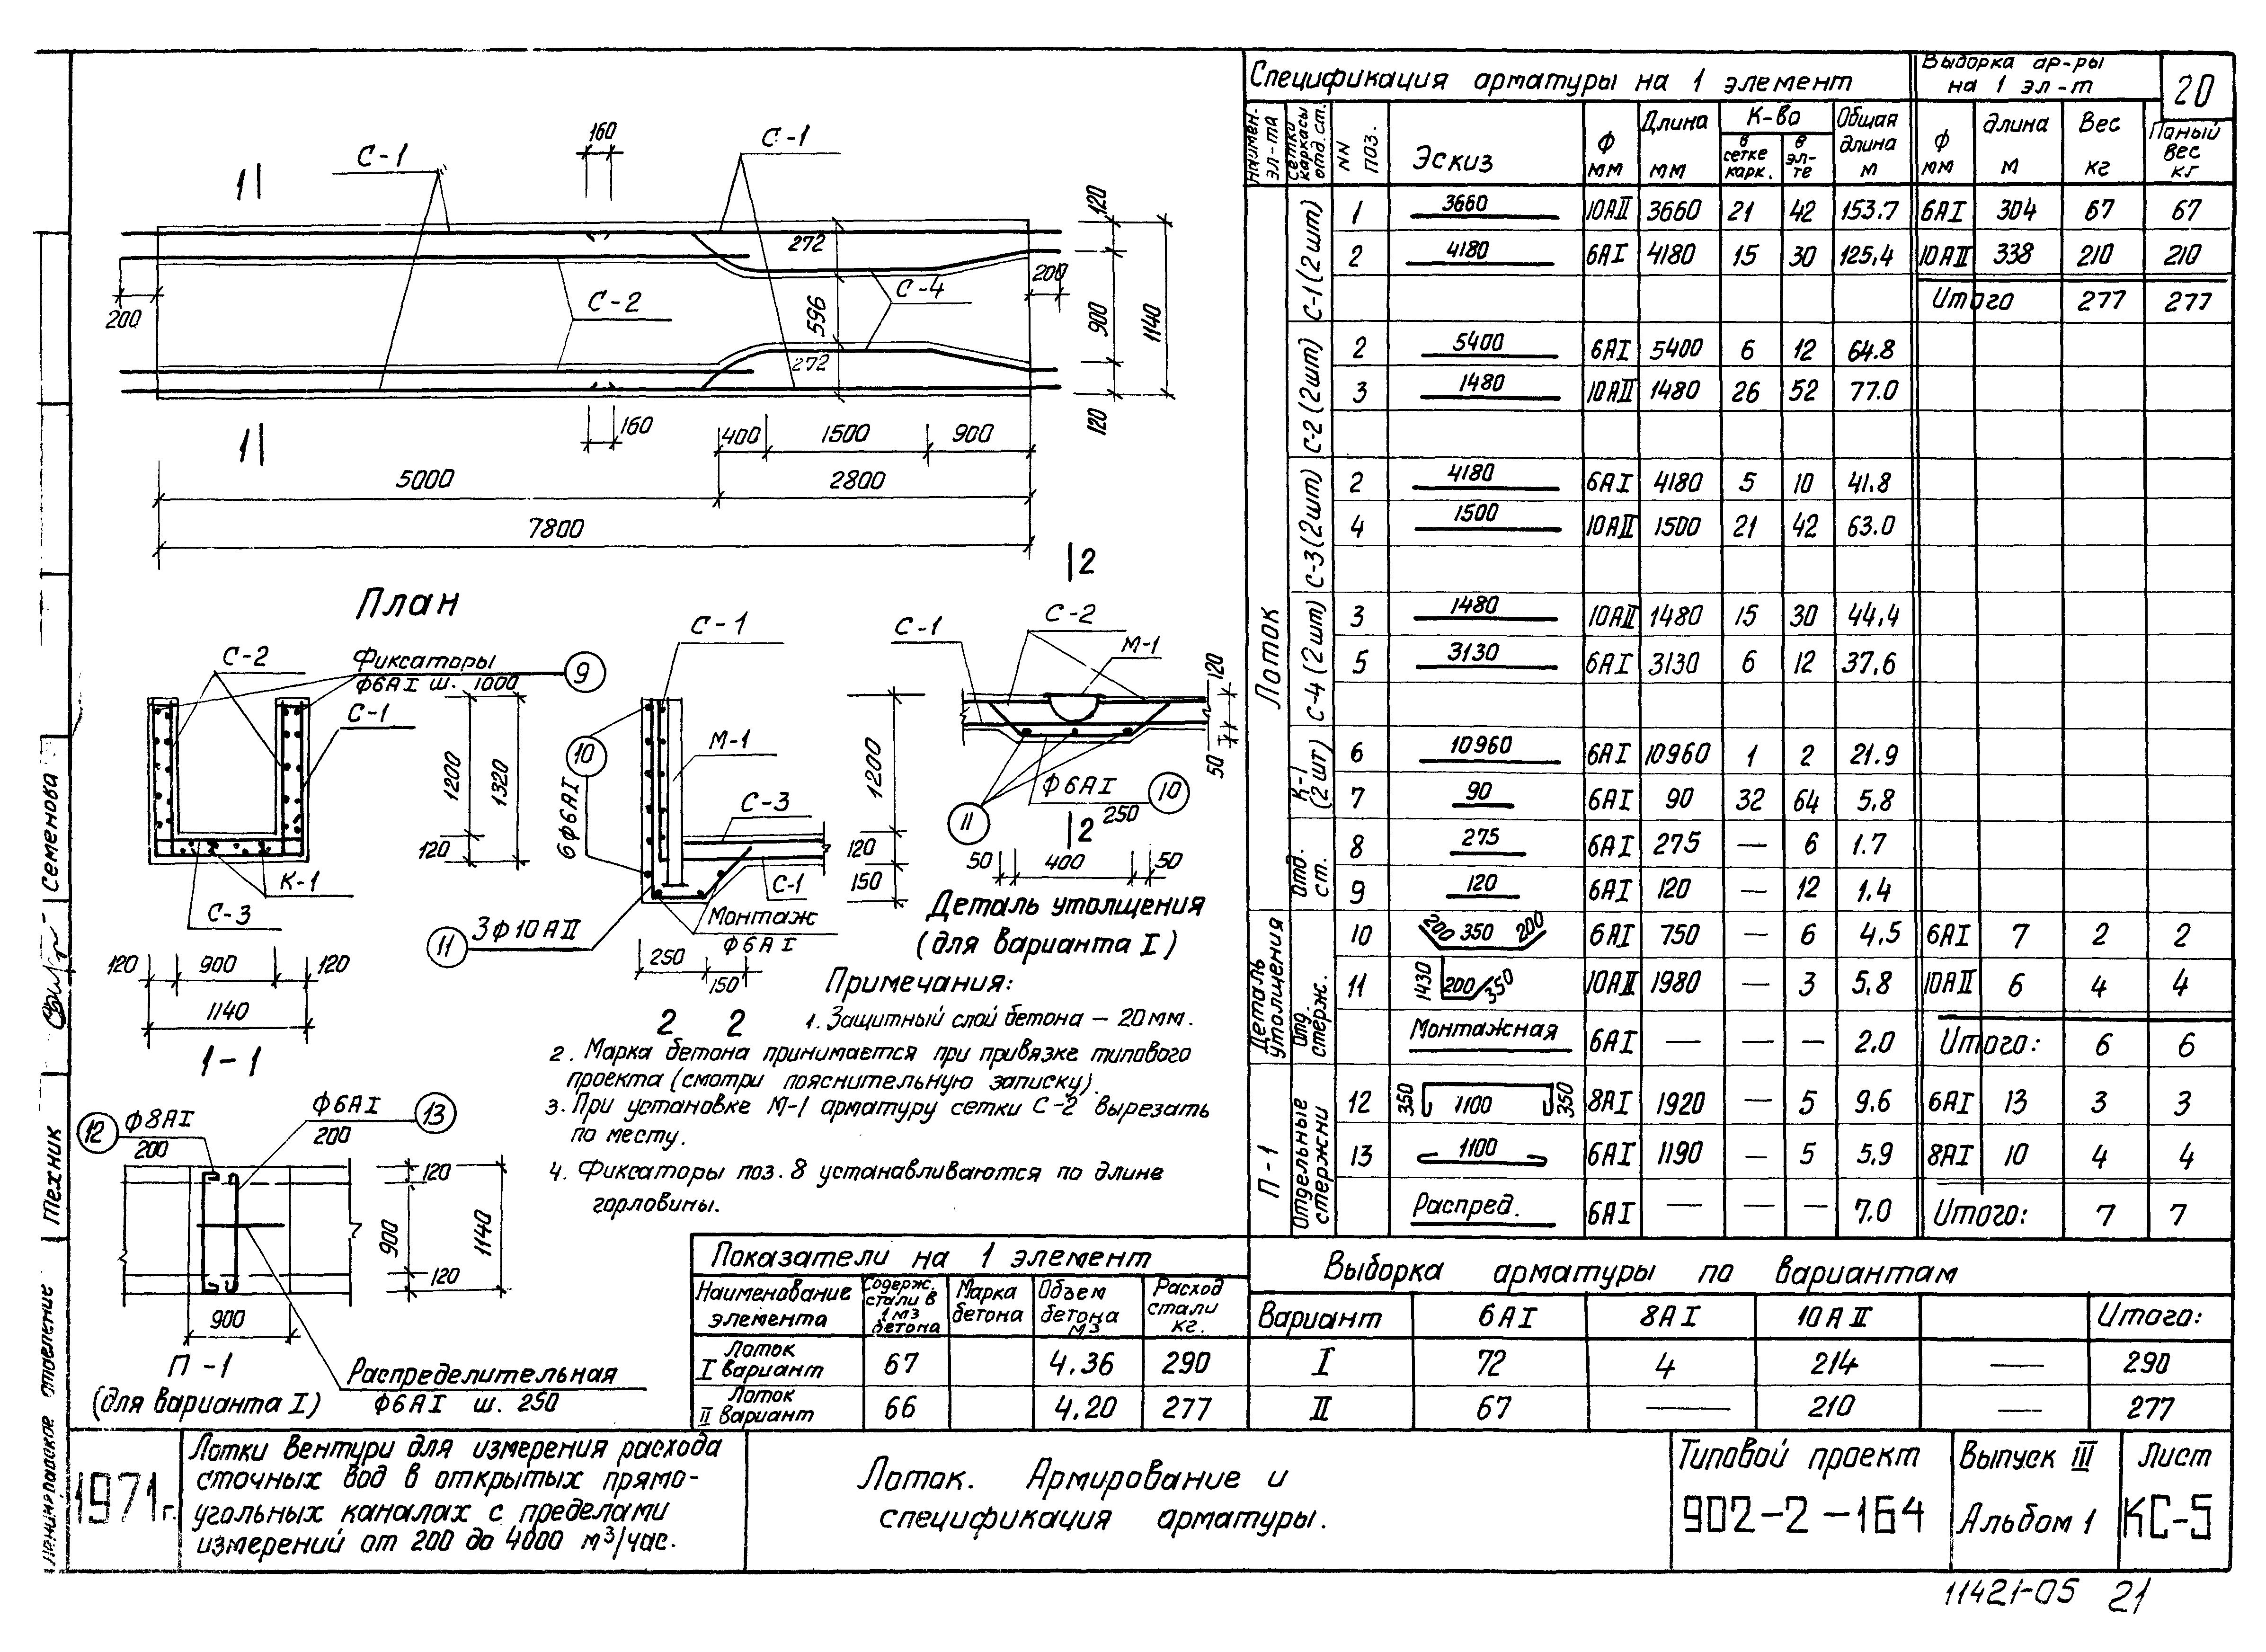 20
Спецификация арматуры на 1 элемент
Выборка ар-ры
на 1 эл-т
Наимен. эл-та
Сетки каркасы отд. ст.
NN поз.
Эскиз
Ф мм
Длина мм
К-во
в сетке карк.
в эл-те
Общая длина м
Ф мм
длина м
Вес кг
вес кг
Лоток
С-1 (2 шт)
1 3660 10АII 3660 21 42 153.7 6АI 304 67 67
2 4180 6АI 4180 15 30 125.4 10АII 338 210 210
Итого 277 277
С-2 (2 шт)
2 5400 6АI 5400 6 12 64.8
3 1480 10АII 1480 26 52 77.0
С-3 (2 шт)
2 4180 6АI 4180 5 10 41.8
4 1500 10АII 1500 21 42 63.0
С-4 (2 шт)
3 1480 10АII 1480 15 30 44.4
5 3130 6АI 3130 6 12 37.6
К-1 (2 шт)
6 10960 6АI 10960 1 2 21.9
7 90 6АI 90 32 64 5.8
Отд. ст.
8 275 6АI 275 — 6 1.7
9 120 6АI 120 — 12 1.4
Деталь утолщения
Отд. стерж.
10 200 350 200 6АI 750 — 6 4.5 6АI 7 2 2
11 1430 200/350 10АII 1980 — 3 5.8 10АII 6 4 4
Монтажная 6АI — — — 2.0 Итого: 6 6
П-1
Отдельные стержни
12 350 1100 350 8АI 1920 — 5 9.6 6АI 13 3 3
13 1100 6АI 1190 — 5 5.9 8АI 10 4 4
Распред. 6АI — — — 7.0 Итого: 7 7
1 1
С-1
160
С-1
120
272
200
596
С-4
С-2
200
900
1140
272
120
160
400 1500 900
5000 2800
7800
План
С-2
Фиксаторы
Ф6АI ш. 1000
9
С-1
1200
1320
120
К-1
С-3
120 900 120
1140
1-1
С-1
10
М-1
6Ф6АI
С-3
1200
120
150
С-1
Монтаж
Ф6АI
11 3Ф10АII
250
150
2 2
2
С-1
С-2
М-1
120
50
Ф6АI
250
10
11
2
50 400 50
Деталь утолщения
(для варианта I)
Примечания:
1. Защитный слой бетона – 20 мм.
2. Марка бетона принимается при привязке типового
проекта (смотри пояснительную записку).
3. При установке М-1 арматуру сетки С-2 вырезать
по месту.
4. Фиксаторы поз. 8 устанавливаются по длине
горловины.
12 Ф8АI
200
Ф6АI
200
13
120
900
1140
120
900
П-1
(для варианта I)
Распределительная
Ф6АI ш. 250
Показатели на 1 элемент
Наименование элемента
Содерж. стали в 1 м3 бетона
Марка бетона
Объем бетона м3
Расход стали кг.
Лоток I вариант 67 4.36 290
Лоток II вариант 66 4.20 277
Выборка арматуры по вариантам
Вариант 6АI 8АI 10АII Итого:
I 72 4 214 — 290
II 67 — 210 — 277
Семенова
Техник
отделение
1971 г.
Лотки Вентури для измерения расхода
сточных вод в открытых прямо-
угольных каналах с пределами
измерений от 200 до 4000 м3/час.
Лоток. Армирование и
спецификация арматуры.
Типовой проект
902-2-164
Выпуск III
Альбом 1
Лист
КС-5
11421-05 21